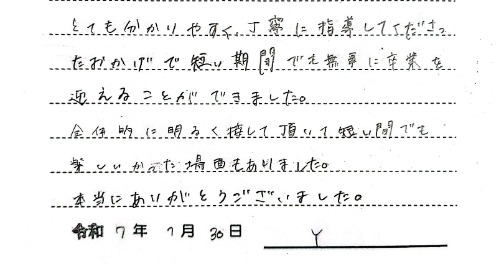 とても分かりやすく、丁寧に指導してくださっ
たおかげで短い期間でも無事に卒業を
迎えることができました。
全体的に明るく接して頂いて短い間でも
楽しいかった場面もありました。
本当にありがとうございました。
令和 7年 7月 30日 Y